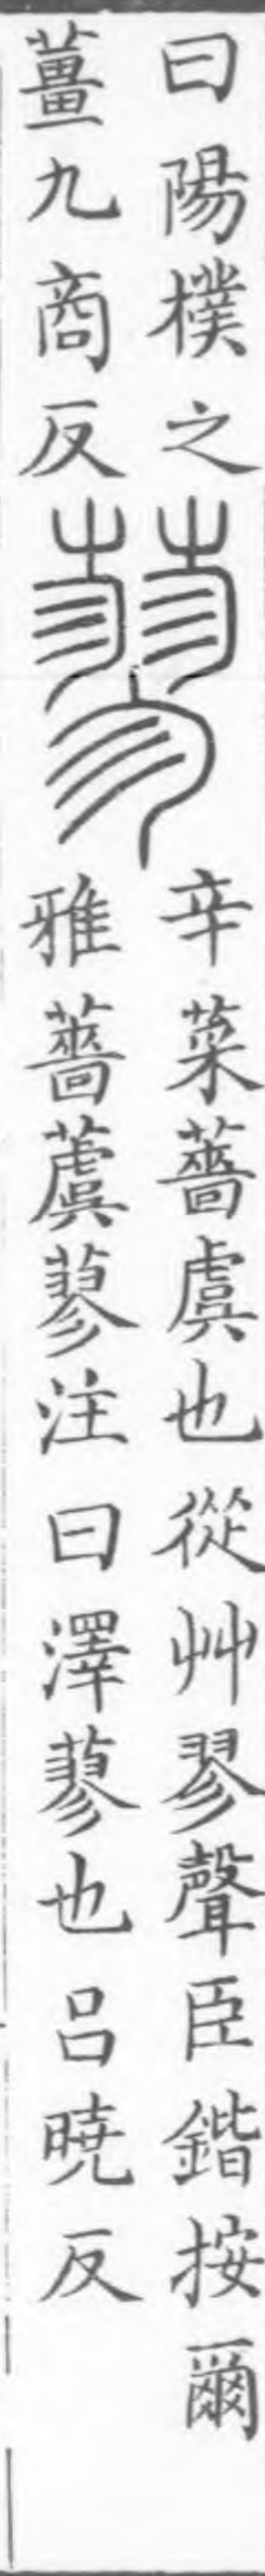 曰陽樸之
薑九商反
辛菜薔虞也從艸翏聲臣鍇按爾
雅薔蘆蓼注曰澤蓼也呂曉反